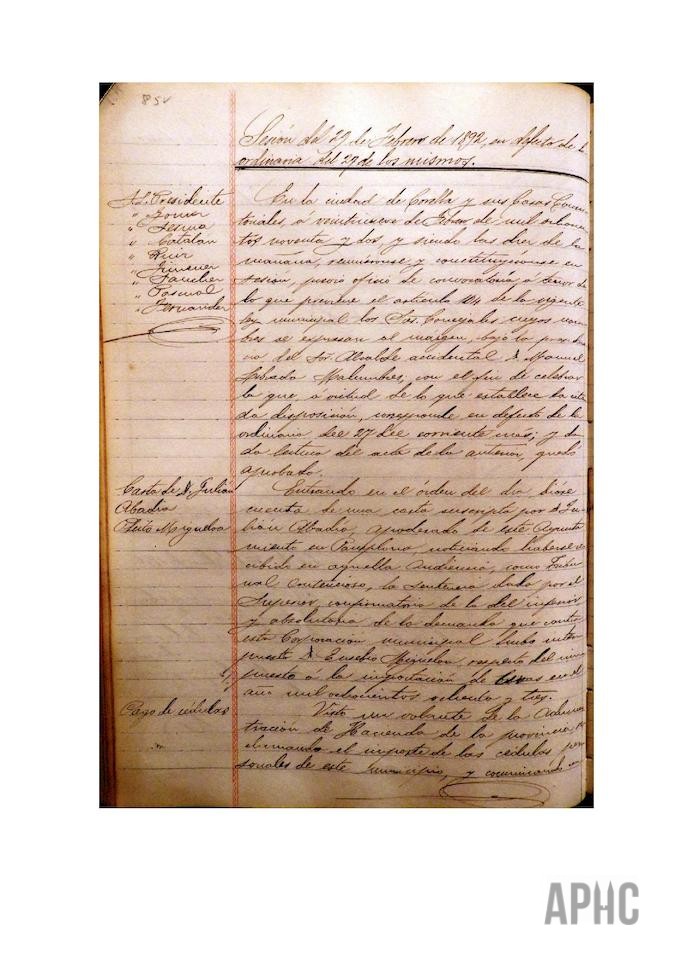 85v
Sesión del 29 de Febrero de 1892, en defecto de la
ordinaria del 27 de los mismos.
Sr. Presidente
" Jesua
" Catalán
" Ruiz
" Jimenez
" Sanchez
" Pascual
" Fernandez
En la ciudad de Corella y sus Casas Consis
toriales, á veintinueve de Febrero de mil ochocien
tos noventa y dos, y siendo las diez de la
mañana, reuniéronse y constituyéronse en
sesión, previo oficio de convocatoria á tenor de
lo que previene el artículo 104 de la vigente
ley municipal los Sres. Concejales cuyos nom
bres se expresan al margen, bajo la presiden
cia del Sor. Alcalde accidental D. Manuel
Malumbres, con el fin de celebrar
la que, á virtud de lo que establece la cita
da disposición, corresponde, en defecto de la
ordinaria del 27 del corriente mes; y da
da lectura del acta de la anterior, quedó
aprobada.
Carta de D. Julián
Abadía
Pleito Migueloa
Entrando en el órden del día dióse
cuenta de una carta suscripta por D. Ju
lián Abadía, apoderado de este Ayunta
miento en Pamplona noticiando haberse re
cibido en aquella Audiencia, como Tribu
nal Contencioso, la sentencia dada por el
Superior, confirmatoria de la del inferior
y absolutoria de la demanda que contra
esta Corporación municipal hubo inter
puesto D. Eusebio Migueloa, respecto del im
puesto á la importación de uvas en el
año mil ochocientos ochenta y tres.
Pago de cédulas
Visto un volante de la Adminis
tración de Hacienda de la provincia, re
clamando el importe de las cédulas per
sonales de este municipio, y comunicando
APHC